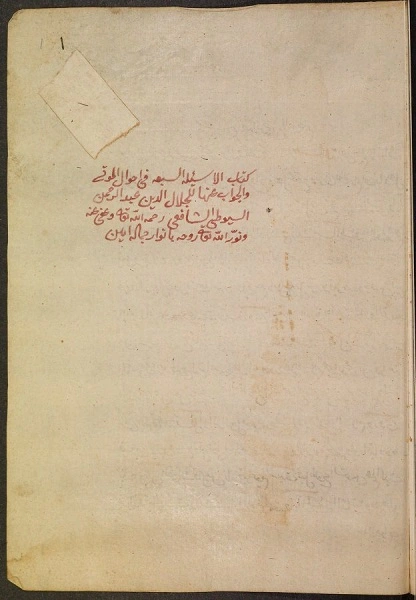 كتاب الاسئلة السبعه في احوال الموتى
والجواب عنها للجلال الدين عبد الرحمن
السيوطي الشافعي رحمه الله تعالى وعفى عنه
ونوّر الله تعالى روحه بانوار جماله امين